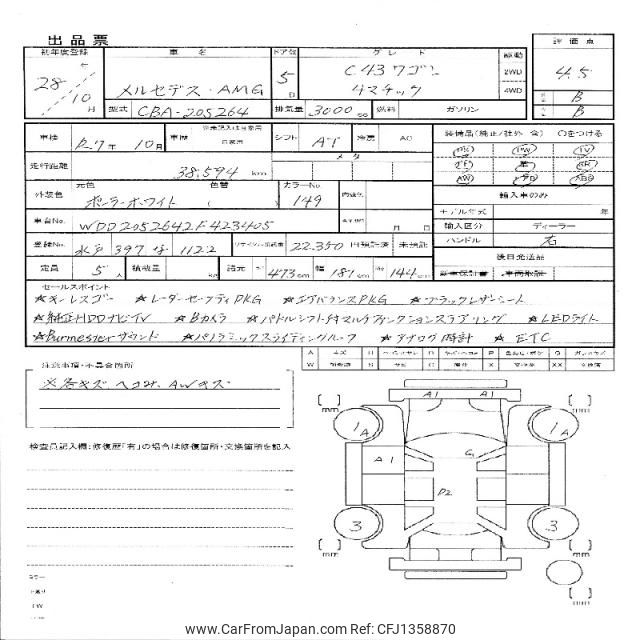 出品票
初年度登録 車名 ドア数 グレード 駆動 評価点
28 / 10 月 メルセデス・AMG 5 D C43ワゴン 4マチック 2WD 4WD 4.5
B
B
型式 CBA-205264 排気量 3000 cc 燃料 ガソリン
車検 R7年 10月 車歴 自家用 シフト AT 冷房 AC 装備品(純正/社外 含) ○をつける
走行距離 38,594 km メータ
PS PW TV
AW ABS
外装色 元色 ポーラーホワイト 色替 ( ) カラーNo 149 内装色 輸入車のみ
モデル年式 年
車台No. WDD2052642F423405 月 日 輸入区分 ディーラー
登録No. 水戸 397 な 1122 リサイクル預託金 22,350 円預託済 未預託 ハンドル 右
定員 5 人 積載量 kg 諸元 長 473 cm 幅 181 cm 高 144 cm 後日発送品
新車保証書 車両取説
セールスポイント
★キーレスゴー ★レーダーセーフティPKG ★エアバランスPKG ★ブラックレザーシート
★純正HDDナビTV ★Bカメラ ★パドルシフト付マルチファンクションステアリング ★LEDライト
★Burmesterサウンド ★パノラミックスライディングルーフ ★アナログ時計 ★ETC
注意事項・不具合箇所
※各キズ ヘコみ、AWキズ
検査員記入欄:修復歴「有」の場合は修復箇所・交換箇所を記入
[ ] mm A1 A1 [ ] mm
1A 1A
A1 G
P2
3 3
[ ] mm [ ] mm
[ ] mm
www.CarFromJapan.com Ref: CFJ1358870